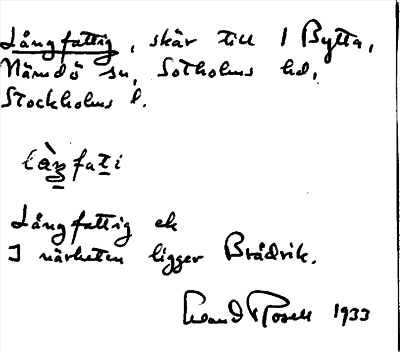 Långfattig, skär till 1 Bytta,
Nämdö sn, Sotholms hd,
Stockholms l.
làŋfati
Långfattig ek
I närheten ligger Brådvik.
Rosell 1933